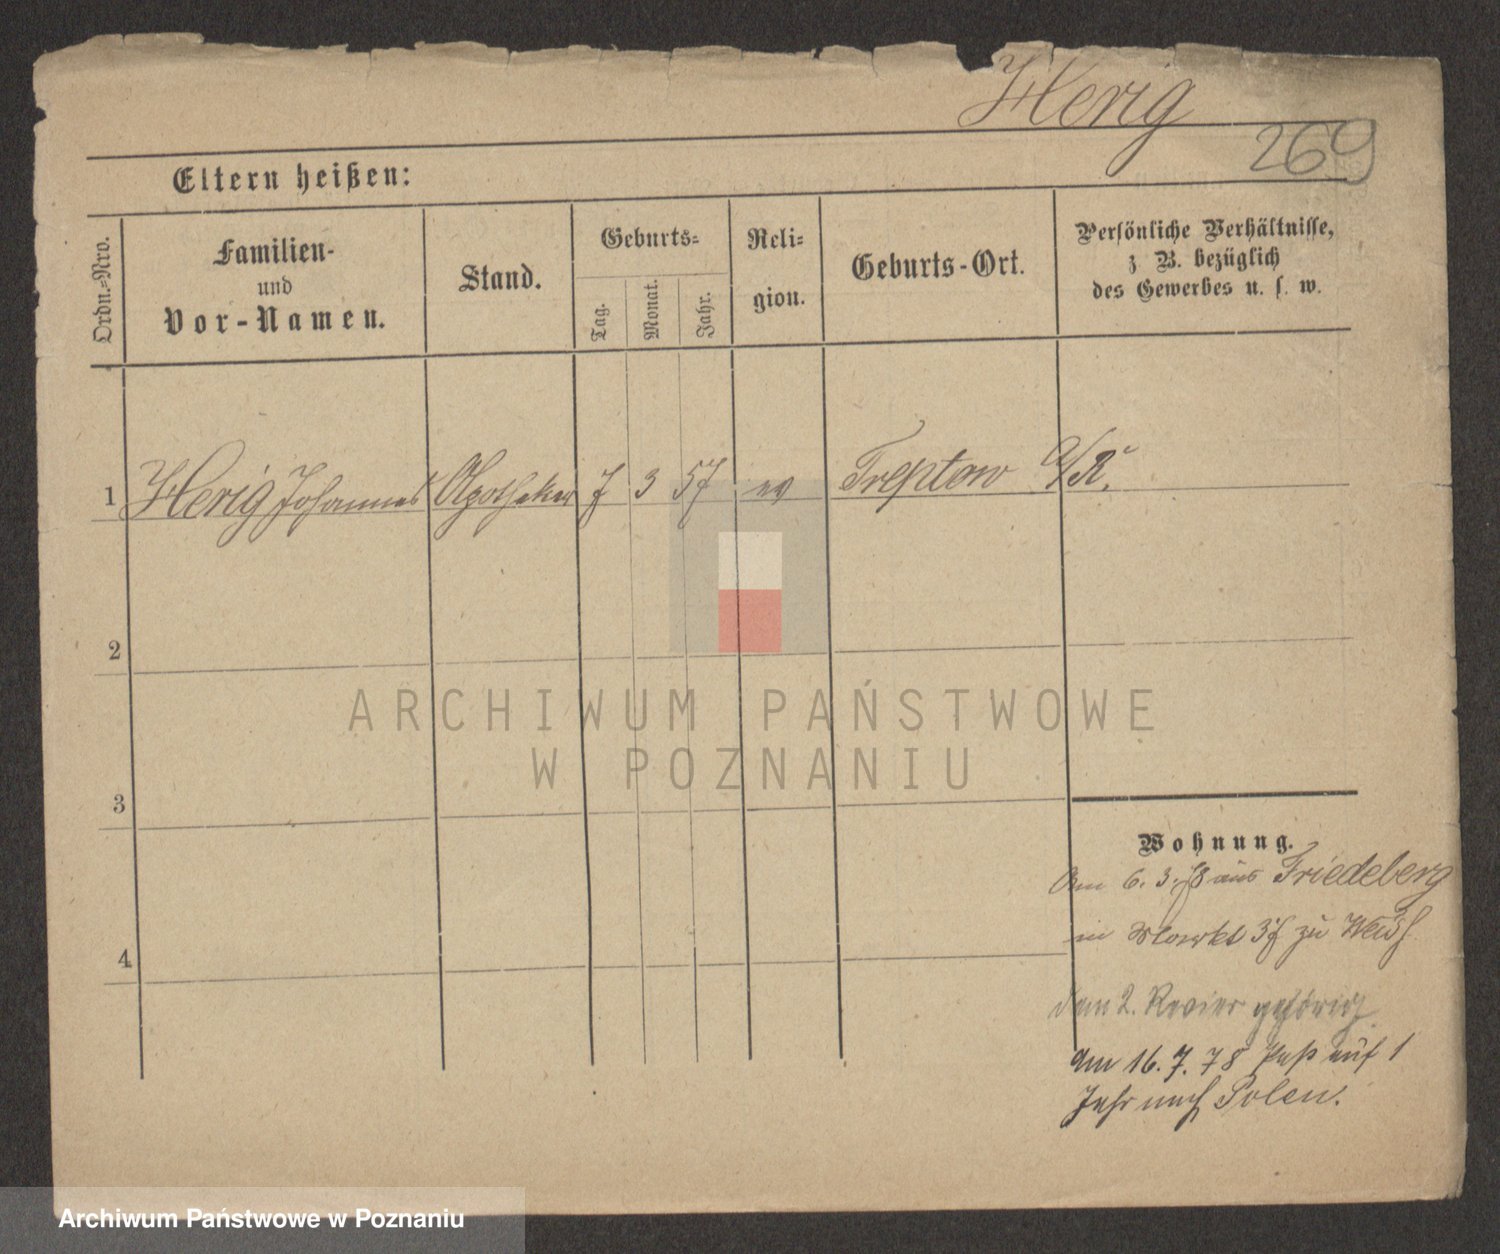 Herig
269
Eltern heißen:
Ordn.-Nro.
Familien-
und
Vor-Namen.
Stand.
Geburts-
Tag.
Monat.
Jahr.
Reli-
gion.
Geburts-Ort.
Persönliche Verhältnisse,
z B. bezüglich
des Gewerbes u. s. w.
1 Herig Johannes Apotheker 7 3 57 ev Treptow a/R.
2
3
4
Wohnung.
Am 6. 3. 78 aus Friedeberg
in Markt 37 zu
dem 2. Revier gehörig
Am 16. 7. 78 Paß auf 1
Jahr nach Polen.
ARCHIWUM PAŃSTWOWE
W POZNANIU
Archiwum Państwowe w Poznaniu